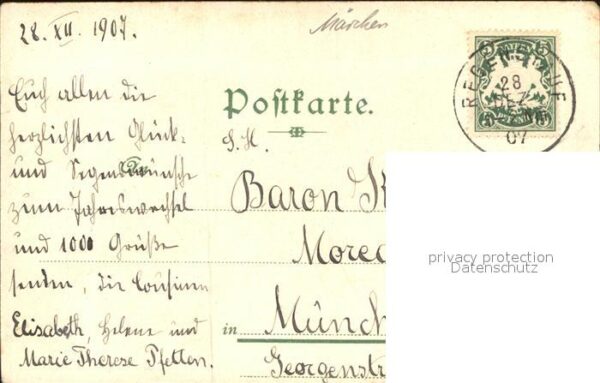 28. XII. 1907.
Märchen
Euch allen die
herzlichsten Glück-
und Segenswünsche
zum Jahreswechsel
und 1000 Grüße
senden, die Cousinen
Elisabeth, Helene und
Marie Therese Pfetten.
Postkarte.
S. H.
Baron K
More
in Münch
Georgenstr
BAYERN
28
DEZ
07
privacy protection
Datenschutz